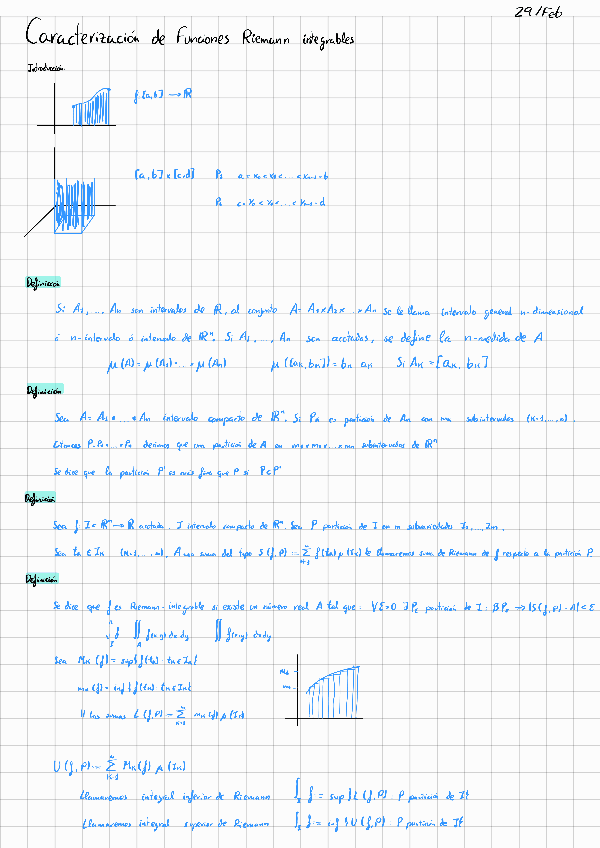 29/Feb
Caracterización de Funciones Riemann integrables
Introducción
f: [a,b] → ℝ
[a,b] x [c,d] P₁ a = x₀ < x₁ < ... < xₘ₋₁ = b
P₂ c = y₀ < y₁ < ... < yₘ₋₁ = d
Definición
Si A₁, ..., Aₙ son intervalos de ℝ, al conjunto A = A₁ x A₂ x ... x Aₙ se le llama intervalo general n-dimensional
ó n-intervalo ó intervalo de ℝⁿ. Si A₁, ..., Aₙ son acotados, se define la n-medida de A
μ(A) = μ(A₁) · ... · μ(Aₙ) μ([aₖ, bₖ]) = bₖ - aₖ Si Aₖ = [aₖ, bₖ]
Definición
Sea A = A₁ x ... x Aₙ intervalo compacto de ℝⁿ. Si Pₖ es partición de Aₖ con mₖ subintervalos (k=1,...,n),
entonces P = P₁ x ... x Pₙ decimos que una partición de A en m₁ x m₂ x ... x mₙ subintervalos de ℝⁿ
Se dice que la partición P' es más fina que P si P ⊂ P'
Definición
Sea f: I ⊂ ℝⁿ → ℝ acotada, I intervalo compacto de ℝⁿ. Sea P partición de I en m subintervalos I₁, ..., Iₘ.
Sea tₖ ∈ Iₖ (k=1,...,m), A una suma del tipo S(f,P) = Σ f(tₖ) μ(Iₖ) le llamaremos suma de Riemann de f respecto a la partición P
Definición
Se dice que f es Riemann-integrable si existe un número real A tal que: ∀ε>0 ∃Pε partición de I : → |S(f,P) - A| < ε
∫ f ∬ f(x,y) dx dy ∬ f(x,y) dx dy
Sea Mₖ(f) = sup{f(tₖ) : tₖ ∈ Iₖ}
mₖ(f) = inf{f(tₖ) : tₖ ∈ Iₖ}
Y las sumas L(f,P) = Σ mₖ(f) μ(Iₖ)
U(f,P) = Σ Mₖ(f) μ(Iₖ)
Llamaremos integral inferior de Riemann ∫ f = sup{L(f,P) P partición de I}
Llamaremos integral superior de Riemann ∫ f = inf{U(f,P) P partición de I}